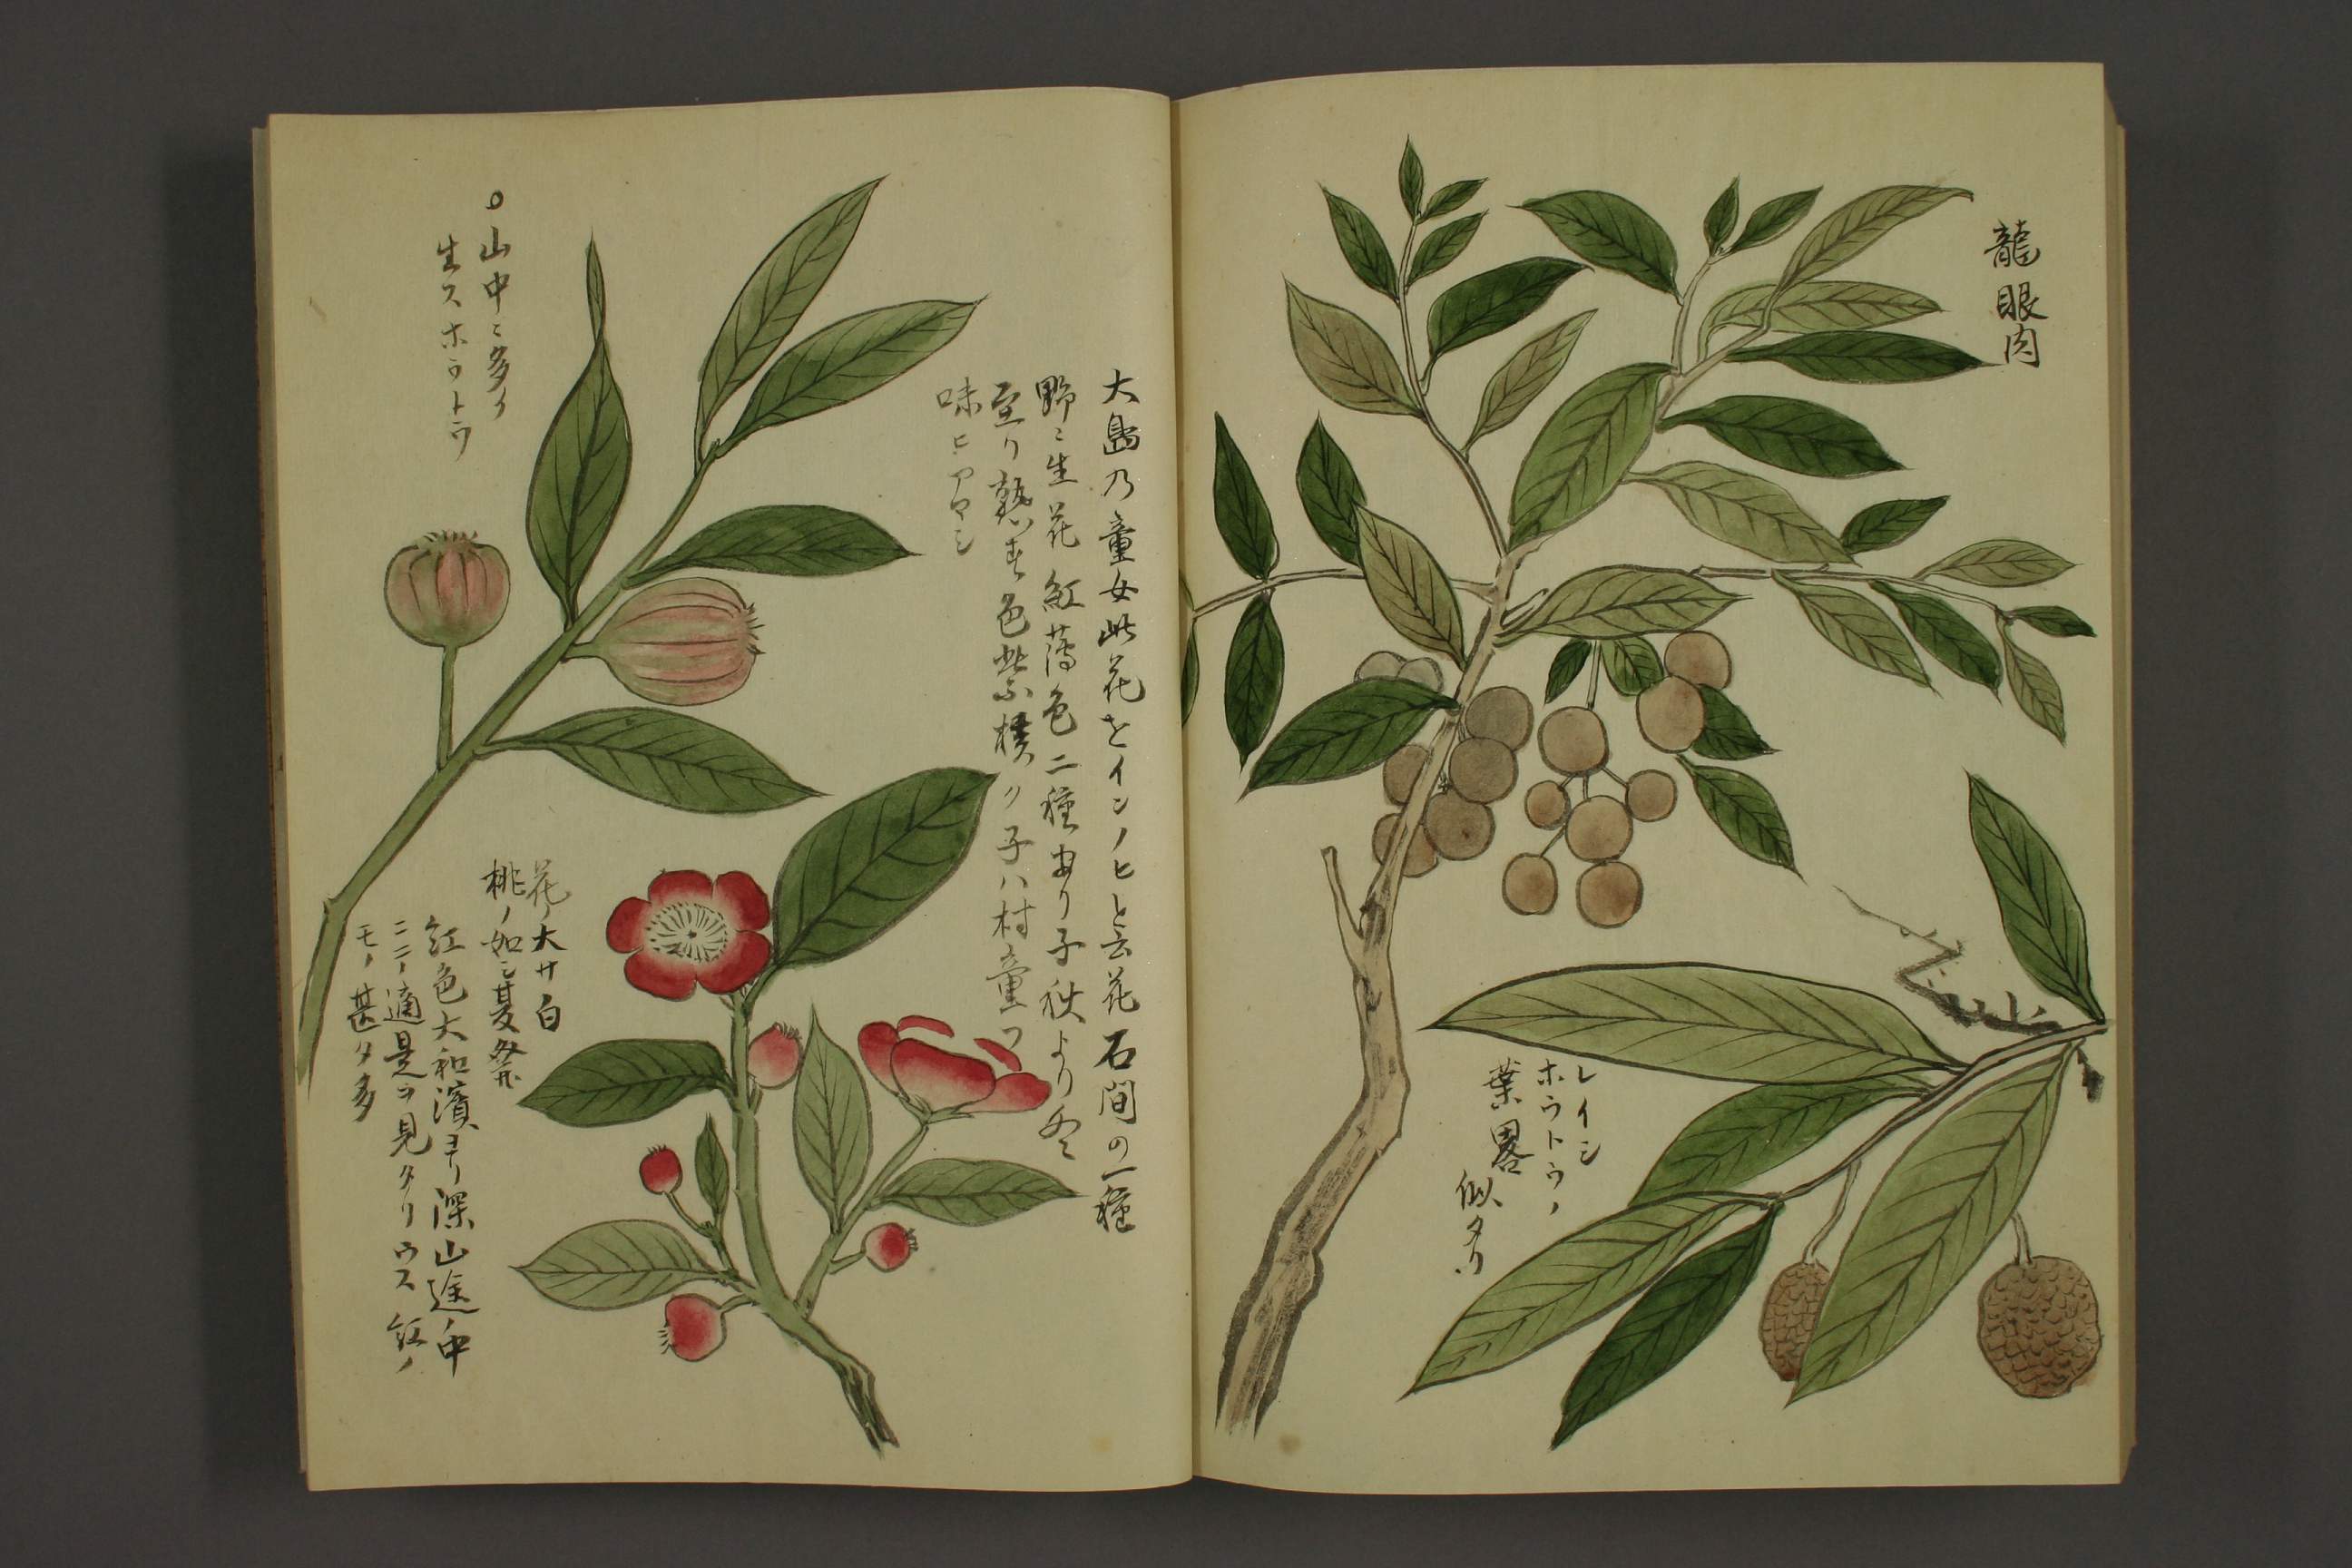 龍眼肉
レイシ
ホウトウノ
葉畧
似タリ
大島乃童女此花をインノヒと云花石間の一種
野ニ生花紅薄色二種あり子秋より冬
至り熟す色紫横ク子ハ村童
味ヒアマシ
山中ニ多ク
生スホウトウ
花ノ大サ白
桃ノ如シ夏祭
紅色大和濱ヨリ深山途ノ中
ニテ適是ヲ見タリウス紅ノ
モノ甚タ多